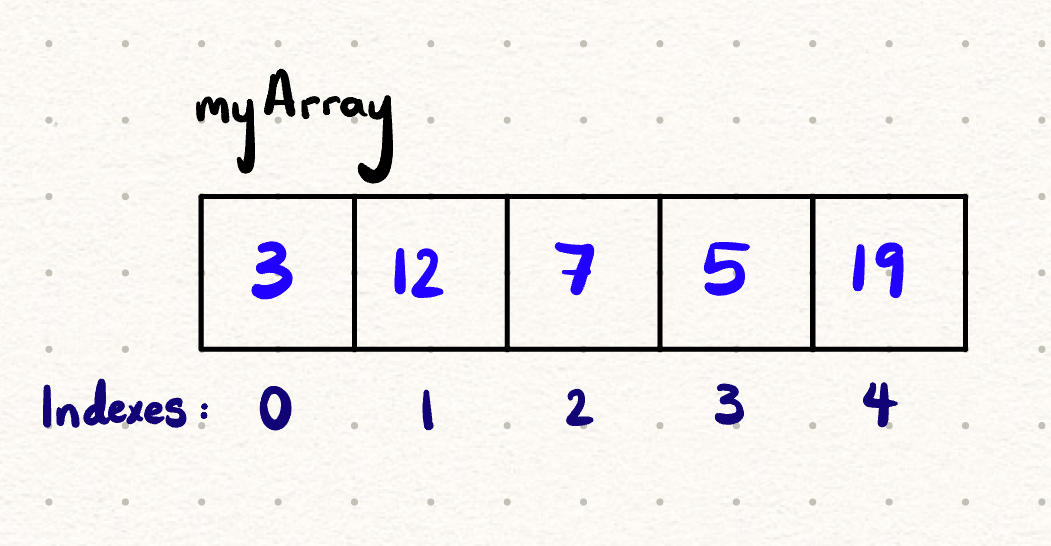 myArray
3 12 7 5 19
Indexes: 0 1 2 3 4